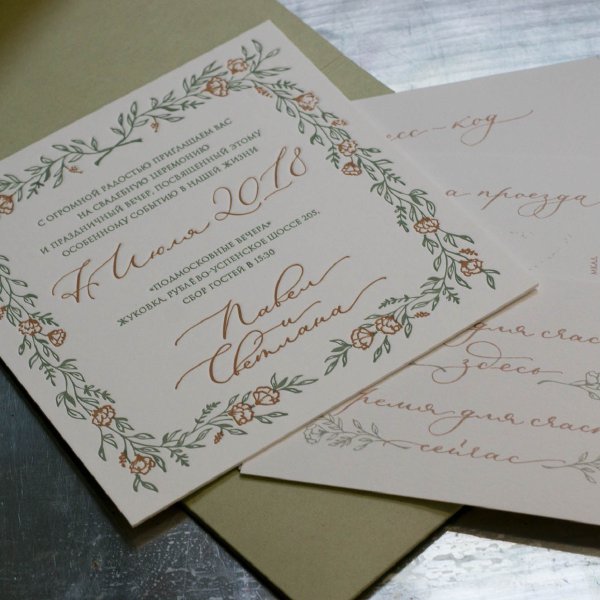 С ОГРОМНОЙ РАДОСТЬЮ ПРИГЛАШАЕМ ВАС
НА СВАДЕБНУЮ ЦЕРЕМОНИЮ
И ПРАЗДНИЧНЫЙ ВЕЧЕР, ПОСВЯЩЕННЫЙ ЭТОМУ
ОСОБЕННОМУ СОБЫТИЮ В НАШЕЙ ЖИЗНИ
7 Июля 2018
«ПОДМОСКОВНЫЕ ВЕЧЕРА»
ЖУКОВКА, РУБЛЁВО-УСПЕНСКОЕ ШОССЕ 205,
СБОР ГОСТЕЙ В 15:30
Павел
и
Светлана
есс-код
а проезда
для счас
здесь
ремя для счаст
сейчас